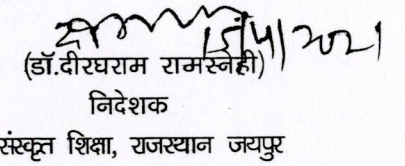 (डॉ.दीरघराम रामस्नेही)
निदेशक
संस्कृत शिक्षा, राजस्थान जयपुर